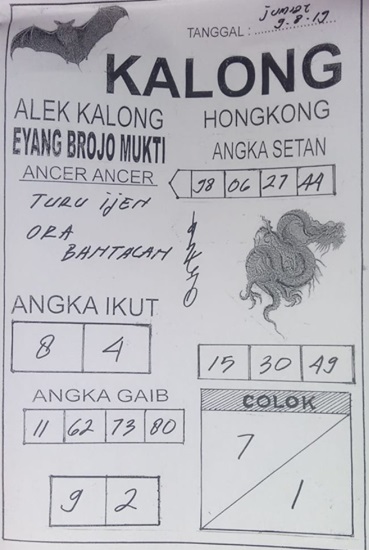 JUMAT
TANGGAL : 9-8-19
KALONG
ALEK KALONG
EYANG BROJO MUKTI
HONGKONG
ANGKA SETAN
ANCER ANCER
98 06 27 44
TURU IJEN
ORA
BANTALAN
ANGKA IKUT
8 4
15 30 49
ANGKA GAIB
11 62 73 80
COLOK
7
1
9 2